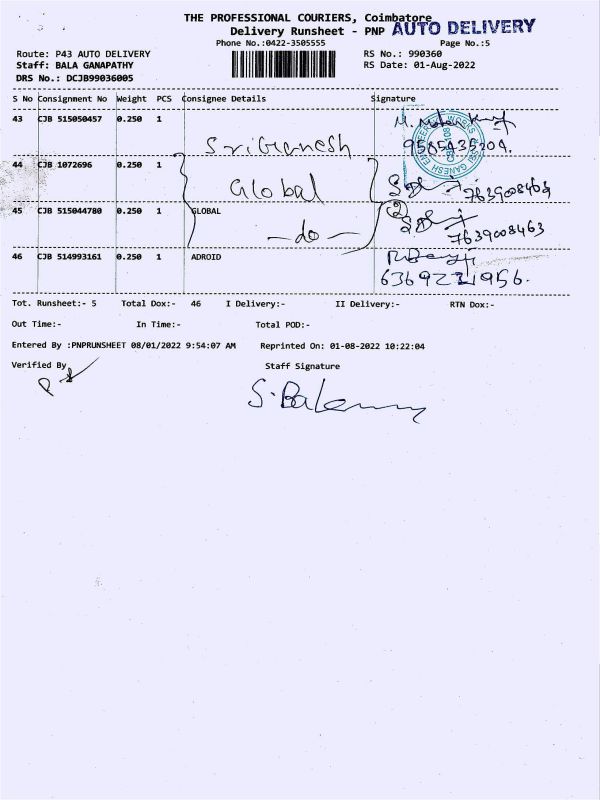 THE PROFESSIONAL COURIERS, Coimbatore
Delivery Runsheet - PNP AUTO DELIVERY
Phone No.:0422-3505555 Page No.:5
Route: P43 AUTO DELIVERY RS No.: 990360
Staff: BALA GANAPATHY RS Date: 01-Aug-2022
DRS No.: DCJB99036005
S No Consignment No Weight PCS Consignee Details Signature
43 CJB 515050457 0.250 1
Sri Ganesh 9585435204.
44 CJB 1072696 0.250 1
Global 7639008463
45 CJB 515044780 0.250 1 GLOBAL
-do- 7639008463
46 CJB 514993161 0.250 1 ADROID
6369231956.
Tot. Runsheet:- 5 Total Dox:- 46 I Delivery:- II Delivery:- RTN Dox:-
Out Time:- In Time:- Total POD:-
Entered By :PNPRUNSHEET 08/01/2022 9:54:07 AM Reprinted On: 01-08-2022 10:22:04
Verified By Staff Signature